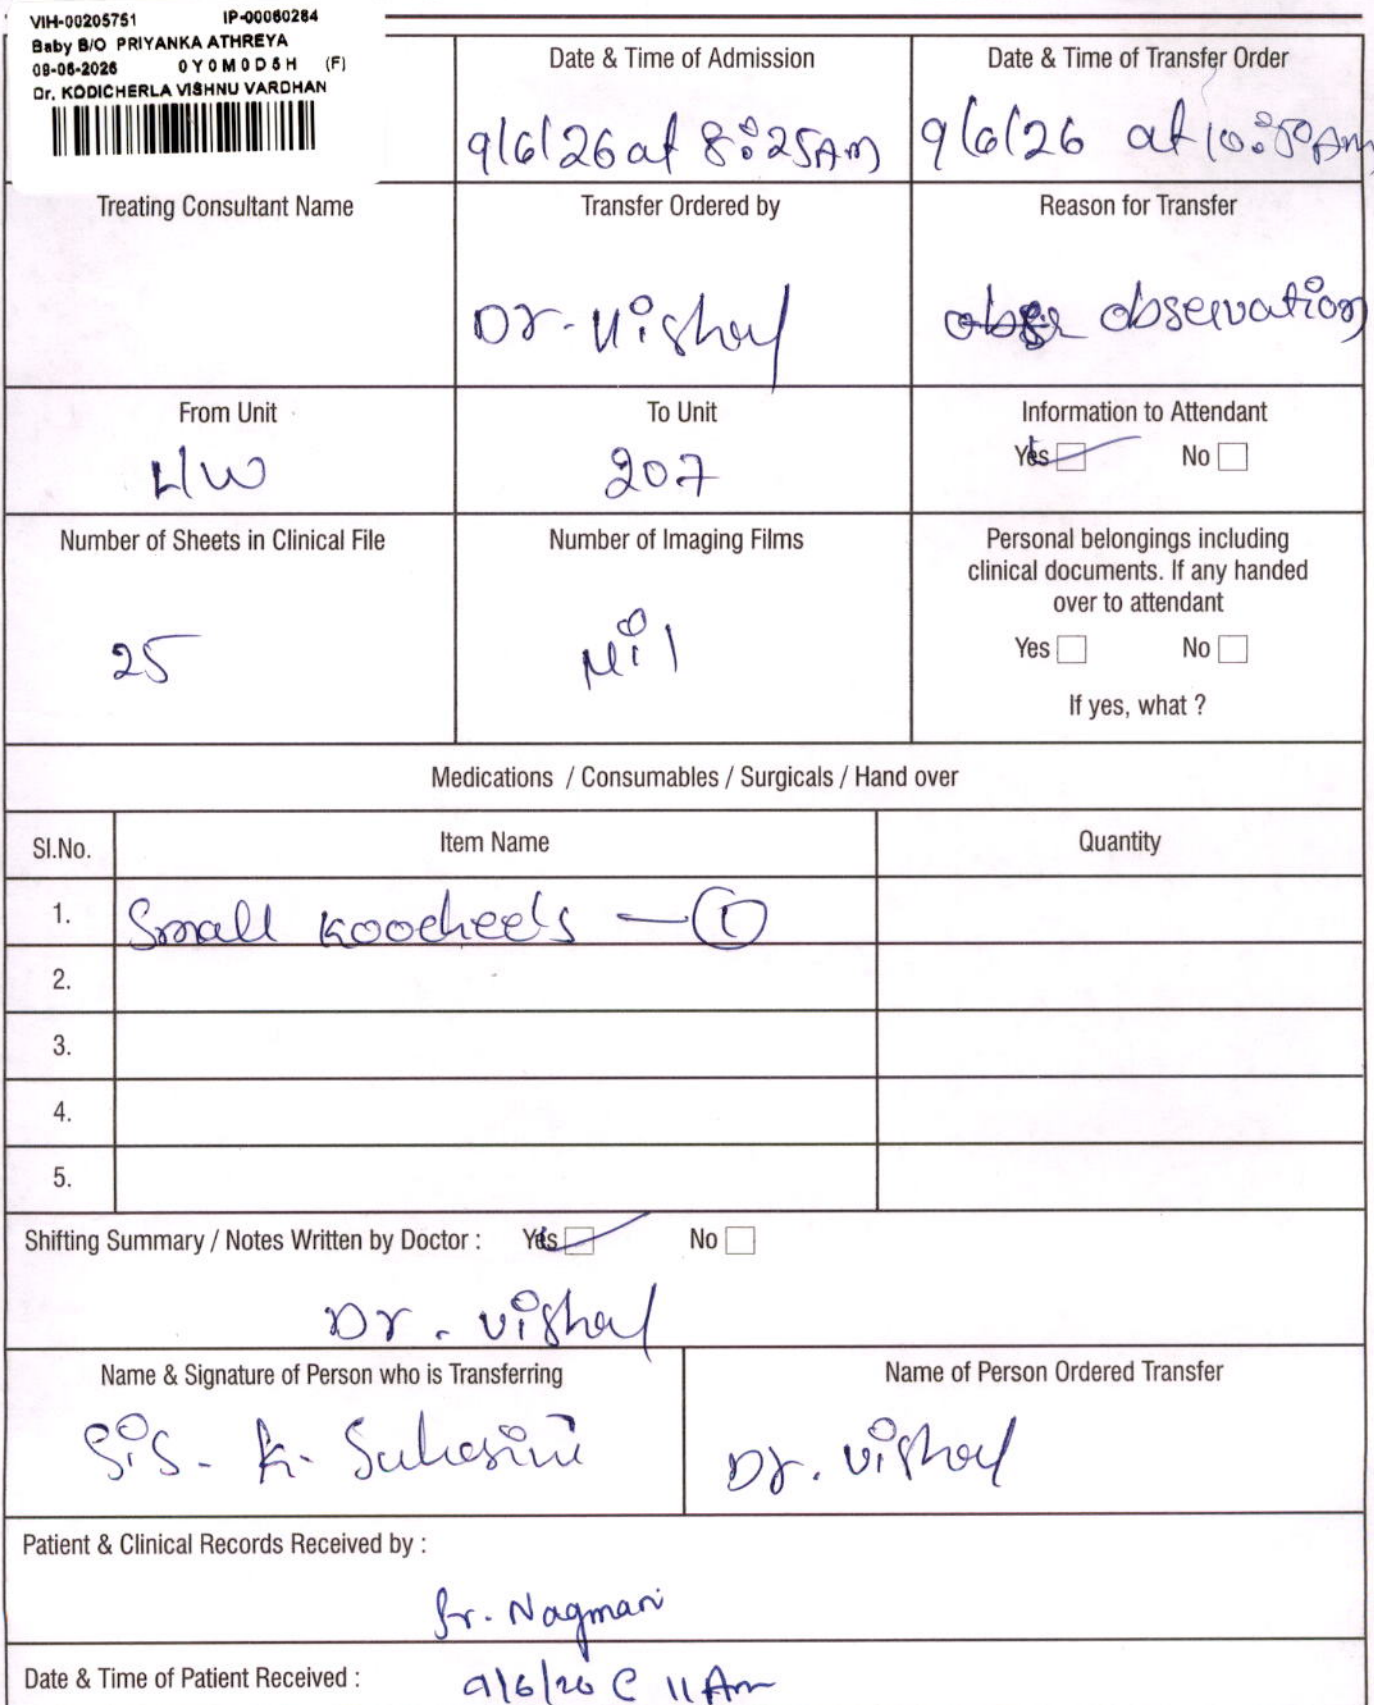 VIH-00205751 IP-00060284
Baby B/O PRIYANKA ATHREYA
09-06-2026 0Y0M0D5H (F)
Dr. KODICHERLA VISHNU VARDHAN
Date & Time of Admission
9/6/26 at 8:25AM
Date & Time of Transfer Order
9/6/26 at 10:50AM
Treating Consultant Name
Transfer Ordered by
Dr. Vishal
Reason for Transfer
observation
From Unit
L/W
To Unit
207
Information to Attendant
Yes No
Number of Sheets in Clinical File
25
Number of Imaging Films
Nil
Personal belongings including
clinical documents. If any handed
over to attendant
Yes No
If yes, what ?
Medications / Consumables / Surgicals / Hand over
Sl.No. Item Name Quantity
1. Small - 1
2.
3.
4.
5.
Shifting Summary / Notes Written by Doctor : Yes No
Dr. Vishal
Name & Signature of Person who is Transferring
Sis. K. Suhasini
Name of Person Ordered Transfer
Dr. Vishal
Patient & Clinical Records Received by :
Sr. Nagmani
Date & Time of Patient Received : 9/6/26 @ 11 Am